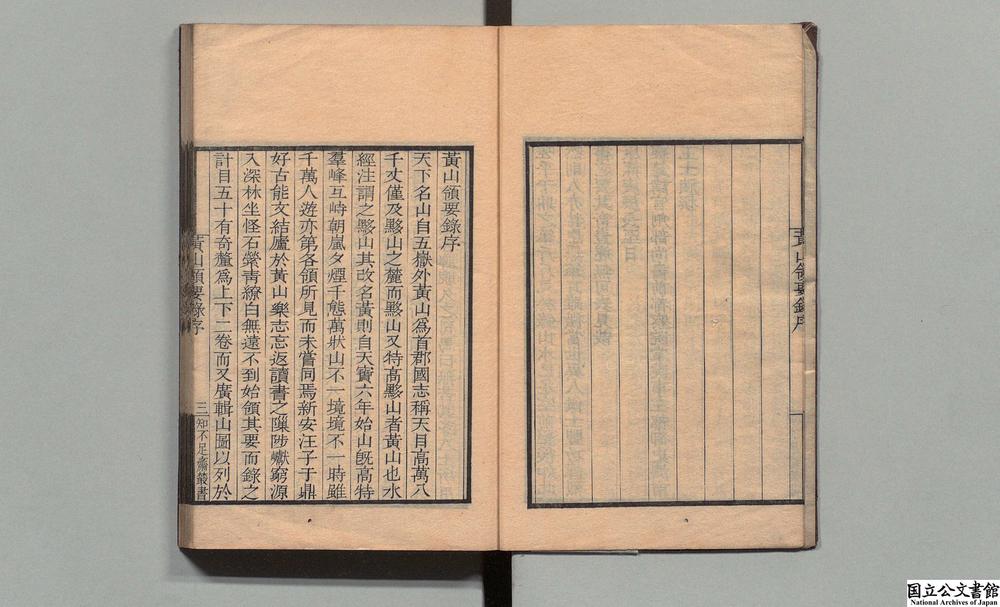 黃山領要錄序
黃山領要錄序
天下名山自五嶽外黃山爲首郡國志稱天目高萬八
千丈僅及黟山之麓而黟山又特高黟山者黃山也水
經注謂之黟山其改名黃則自天寶六年始山旣高特
羣峰互峙朝嵐夕煙千態萬狀山不一境境不一時雖
千萬人遊亦第各領所見而未嘗同焉新安汪子于鼎
好古能文結廬於黃山樂志忘返讀書之隟陟巘窮源
入深林坐怪石縈靑繚白無遠不到始領其要而錄之
計目五十有奇釐爲上下二卷而又廣輯山圖以列於
黃山領要錄序
三
知不足齋叢書
国立公文書館
National Archives of Japan